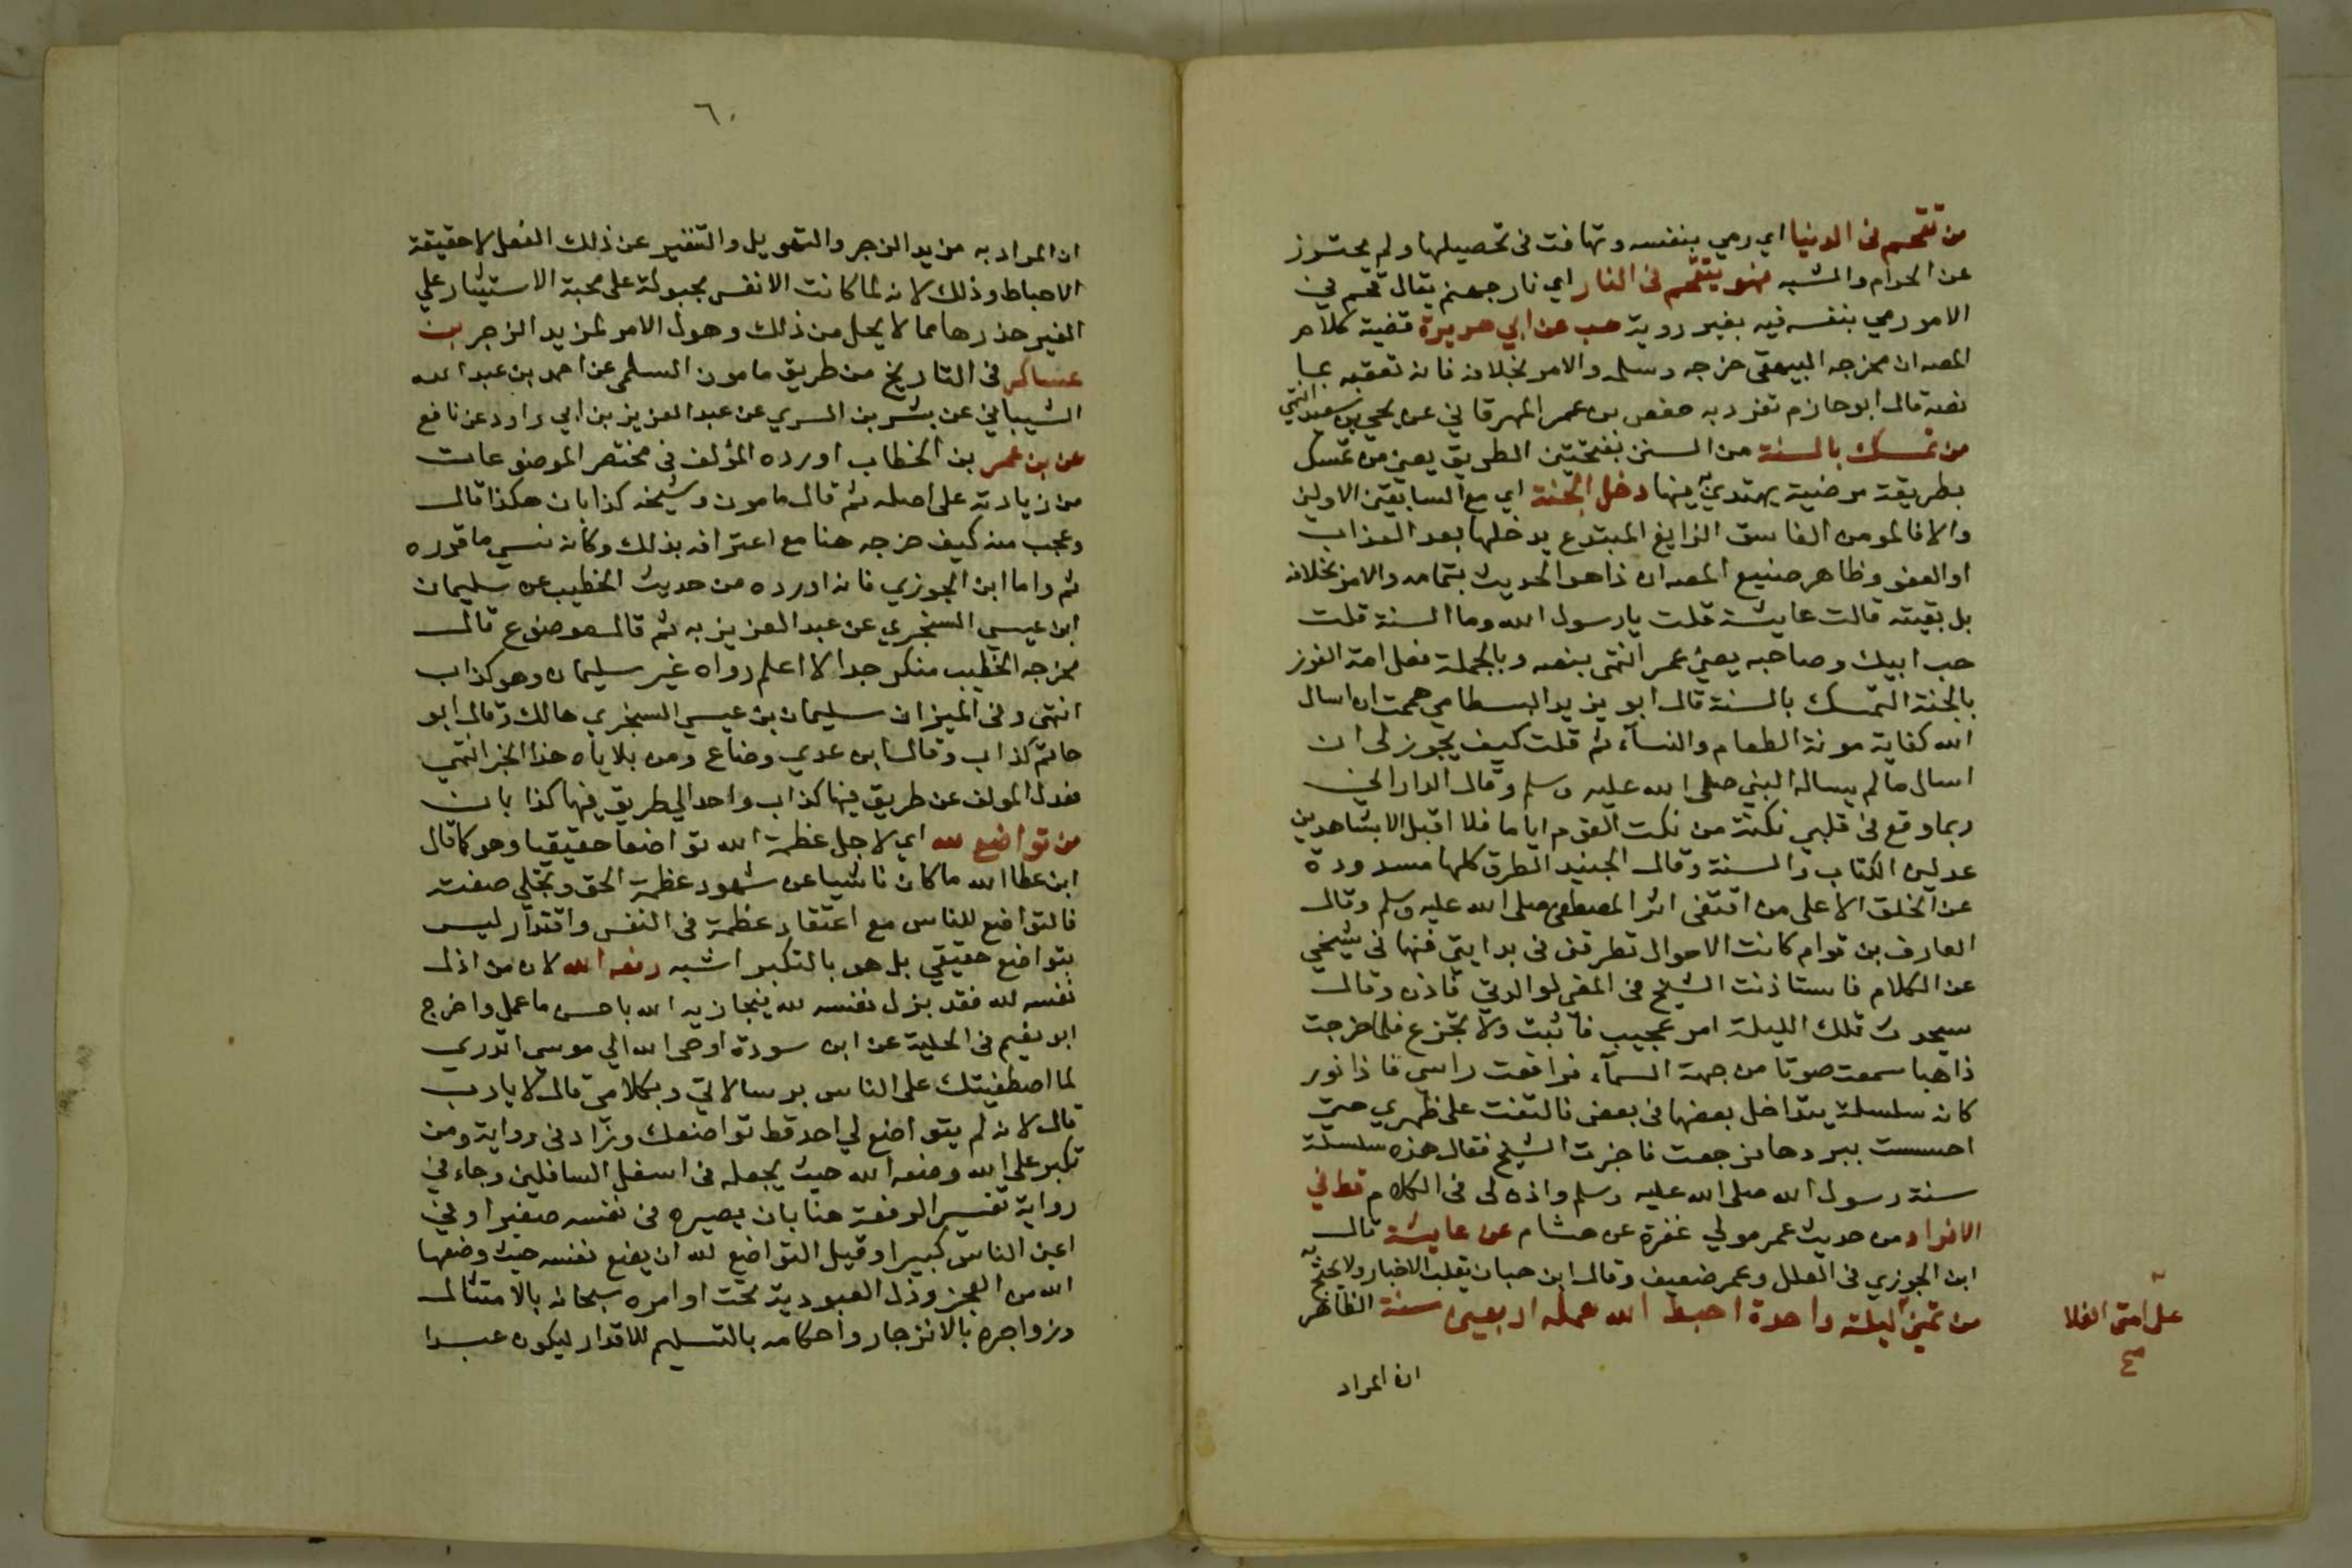 من تقحم فى الدنيا اي رمي بنفسه وتهافت فى تحصيلها ولم يحترز
عن الحرام والشبه فهو يتقحم فى النار اي نار جهنم يقال قحم في
الامر رمي بنفسه فيه بغير روية هب عن ابي هريرة قضية كلام
المصه ان مخرجه البيهقى خرجه وسلمه والامر بخلافه فانه تعقبه بما
نصه قال ابو حازم تفرد به حفص بن عمر المهرقاني عن يحيي بن سعيد انتهي
من تمسك بالسنة من السنن بفتحتين الطريق يعني من تمسك
بطريقة مرضية يهتدي به فيها دخل الجنة اي مع السابقين الاولين
والا فالمومن الفاسق الزايغ المبتدع يدخلها بعد العذاب
او العفو وظاهر صنيع المصه ان ذا هو الحديث بتمامه والامر بخلافه
بل بقيته قالت عايشة قلت يا رسول الله وما السنة قلت
حب ابيك وصاحبه يعني عمر انتهى بنصه وبالجملة فعلامة الفوز
بالجنة التمسك بالسنة قال ابو يزيد البسطامي هممت ان اسال
الله كفاية مونة الطعام والنسآء ثم قلت كيف يجوز لى ان
اسال ما لم يساله النبي صلى الله عليه وسلم وقال الداراني
ربما وقع فى قلبي نكتة من نكت القوم اياما فلا اقبل الا بشاهدين
عدلين الكتاب والسنة وقال الجنيد الطرق كلها مسدودة
عن الخلق الا على من اقتفى اثر المصطفى صلى الله عليه وسلم وقال
العارف بن قوام كانت الاحوال تطرقنى فى بدايتي فنهانى شيخي
عن الكلام فاستاذنت الشيخ فى المضي لوالدتي فاذن وقال
سيحدث تلك الليلة امر عجيب فاثبت ولا تجزع فلما خرجت
ذاهبا سمعت صوتا من جهة السمآء فرافعت راسي فاذا نور
كانه سلسلة يتداخل بعضها فى بعض فالتفت على ظهري حتي
احسست ببردها فرجعت فاخبرت الشيخ فقال هذه سلسلة
سنة رسول الله صلى الله عليه وسلم واذن لى فى الكلام قط في
الافراد من حديث عمر مولي غفرة عن هشام عن عايشة قال
ابن الجوزي فى العلل وعمر ضعيف وقال ابن حبان يقلب الاخبار ولا يحتج به
من تمني ليلة واحدة احبط الله عمله اربعين سنة الظاهر
على امتى الغلا
صح
ان المراد
٦٠
ان المراد به مزيد الزجر والتهويل والتنفير عن ذلك الفعل لا حقيقة
الاحباط وذلك لانه لما كانت الانفس مجبولة على محبة الاستيثار علي
الغير حذرها مما لا يحل من ذلك وهول الامر لمزيد الزجر بن
عساكر فى التاريخ من طريق مامون السلمى عن احمد بن عبد الله
الشيباني عن بشر بن السري عن عبد العزيز بن ابي راود عن نافع
عن بن عمر بن الخطاب اورده المؤلف فى مختصر الموضوعات
من زيادته على اصله ثم قال مامون وشيخه كذابان هكذا قال
وعجب منه كيف خرجه هنا مع اعترافه بذلك وكانه نسي ما قرره
ثم واما ابن الجوزي فانه اورده من حديث الخطيب عن سليمان
ابن عيسي السنجري عن عبد العزيز به ثم قال موضوع قال
مخرجه الخطيب منكر جدا لا اعلم رواه غير سليمان وهو كذاب
انتهى وفى الميزان سليمان بن عيسي السنجري هالك وقال ابو
حاتم كذاب وقال ابن عدي وضاع ومن بلاياه هذا الخبر انتهي
فعدل المولف عن طريق فيها كذاب واحد الي طريق فيها كذابان
من تواضع لله اي لاجل عظمة الله تواضعا حقيقيا وهو كما قال
ابن عطا الله ما كان ناشيا عن شهود عظمة الحق وتجلي صفته
فالتواضع للناس مع اعتقاد عظمة فى النفس واقتدار ليس
بتواضع حقيقي بل هو بالتكبر اشبه رفعه الله لان من اذل
نفسه لله فقد بزل نفسه لله فيجازيه الله باحسن ما عمل واخرج
ابو نعيم فى الحلية عن ابن سودة اوحى الله الي موسي اتدري
لما اصطفيتك على الناس برسالاتي وبكلامى قال لا يا رب
قال لانه لم يتواضع لي احد قط تواضعك وزاد فى رواية ومن
تكبر على الله وضعه الله حيث يجعله فى اسفل السافلين وجاء في
رواية تفسير الرفعة هنا بان يصيره فى نفسه صغيرا وفي
اعين الناس كبيرا وقيل التواضع لله ان يضع نفسه حيث وضعها
الله من العجز وذل العبودية تحت اوامره سبحانه بالامتثال
وزواجره بالانزجار واحكامه بالتسليم للاقدار ليكون عبدا